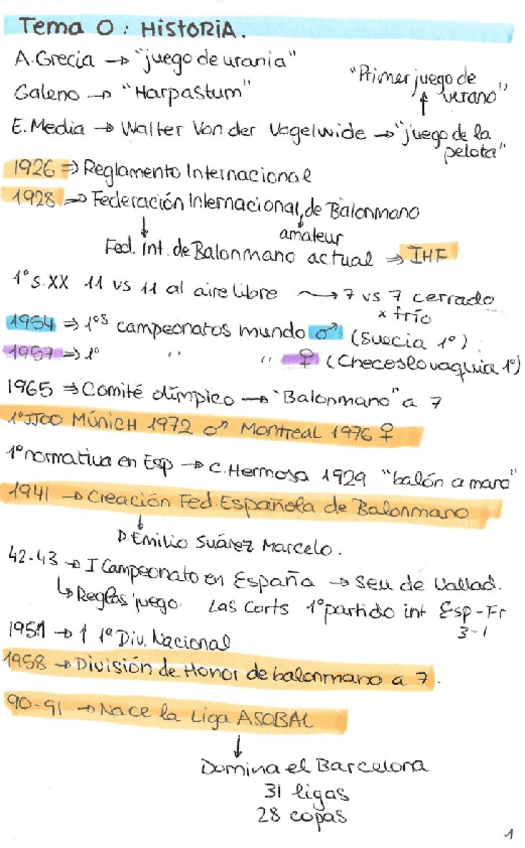 Tema 0: HISTORIA.
A. Grecia → "juego de urania"
"Primer juego de verano"
Galeno → "Harpastum"
E. Media → Walter Von der Vogelwide → "juego de la pelota"
1926 ⇒ Reglamento Internacional
1928 ⇒ Federación Internacional de Balonmano
amateur
Fed. Int. de Balonmano actual ⇒ IHF
1º s. XX 11 vs 11 al aire libre → 7 vs 7 cerrado
x frío
1954 ⇒ 1ºs campeonatos mundo ♂ (Suecia 1º)
1957 ⇒ 1º " " ♀ (Checoslovaquia 1º)
1965 ⇒ Comité olímpico → "Balonmano" a 7
1º JJOO MúnicH 1972 ♂ Montreal 1976 ♀
1º normativa en Esp → C. Hermosa 1929 "balón a mano"
1941 → Creación Fed. Española de Balonmano
D Emilio Suárez Marcelo.
42-43 → I Campeonato en España → SEU de Vallad.
↳ Reglas juego. Las Corts 1º partido int Esp-Fr
3-1
1951 → ↑ 1ª Div. Nacional
1958 → División de Honor de balonmano a 7.
90-91 → Nace la Liga ASOBAL
Domina el Barcelona
31 ligas
28 copas
1